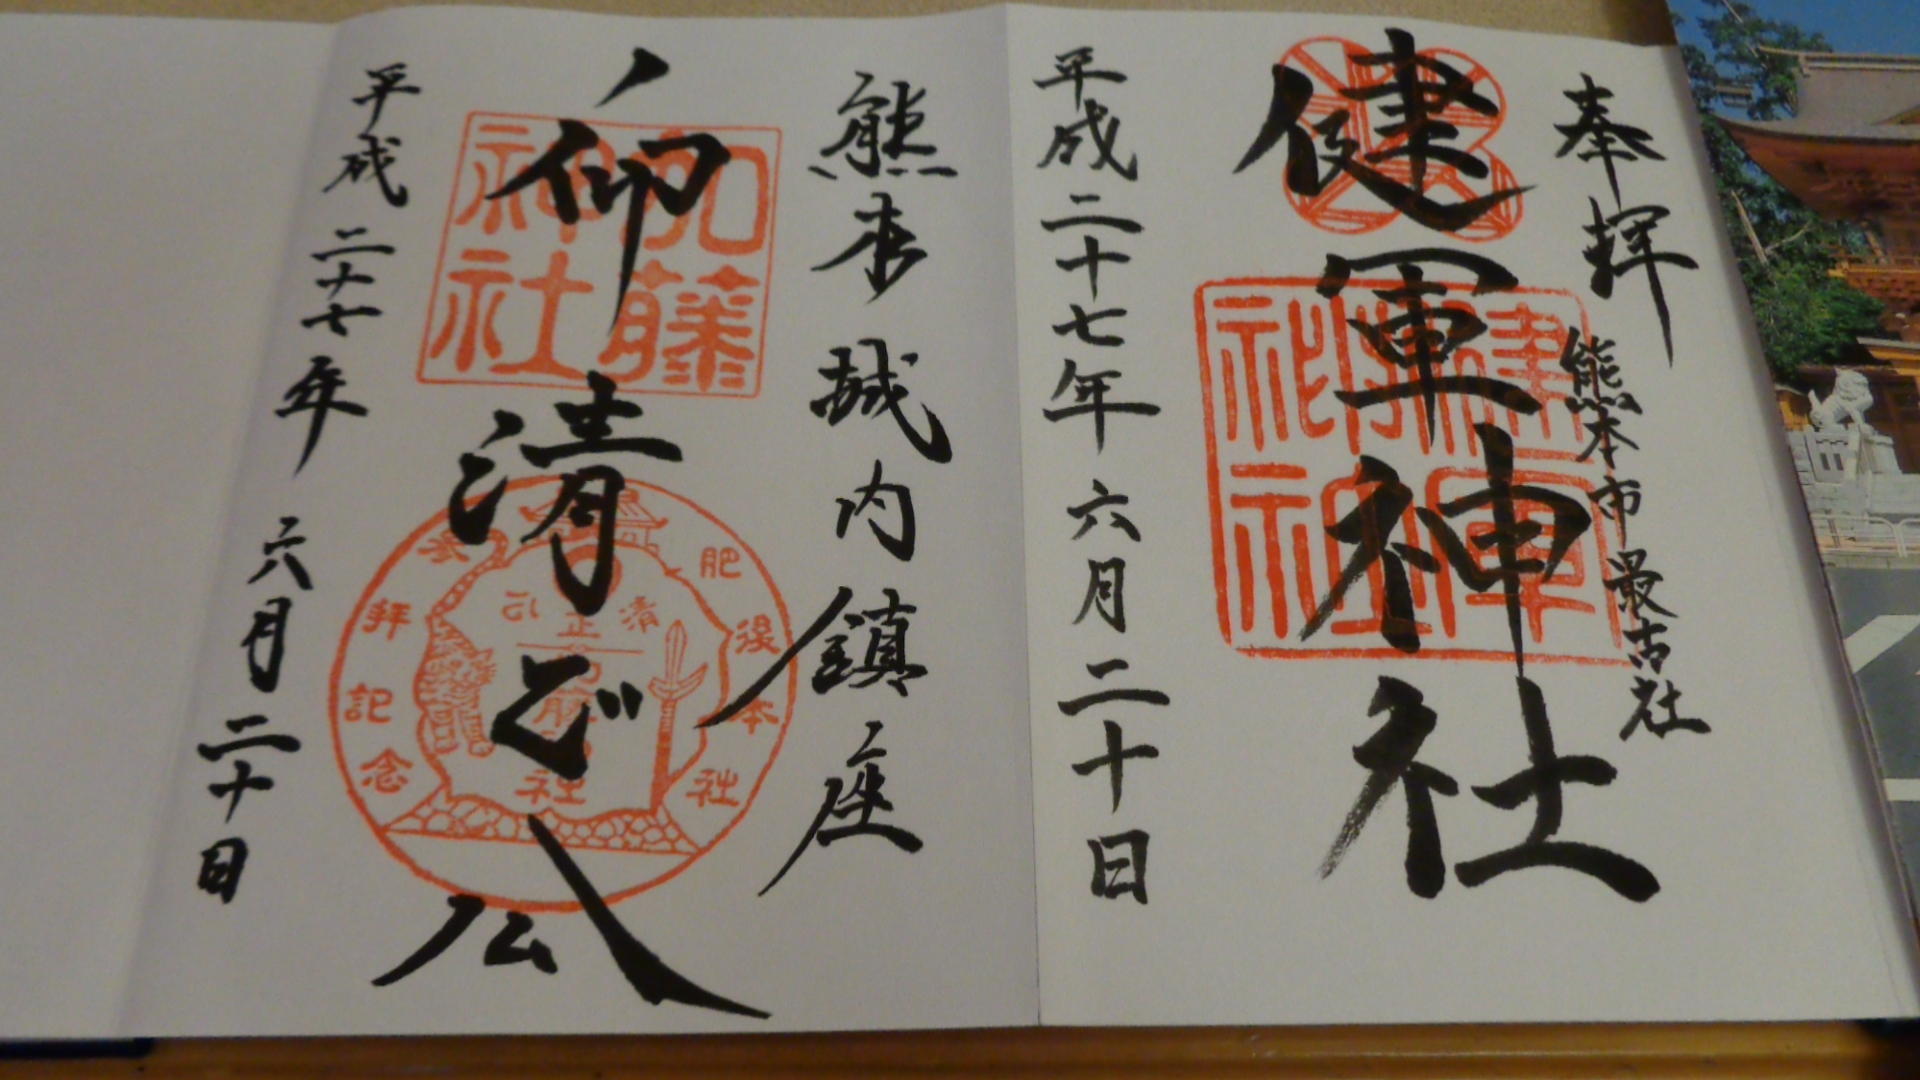 奉拝
熊本市最古社
健軍神社
平成二十七年六月二十日
熊本城内鎮座
仰清正公
加藤
神社
肥後本社
参拝記念
平成二十七年六月二十日